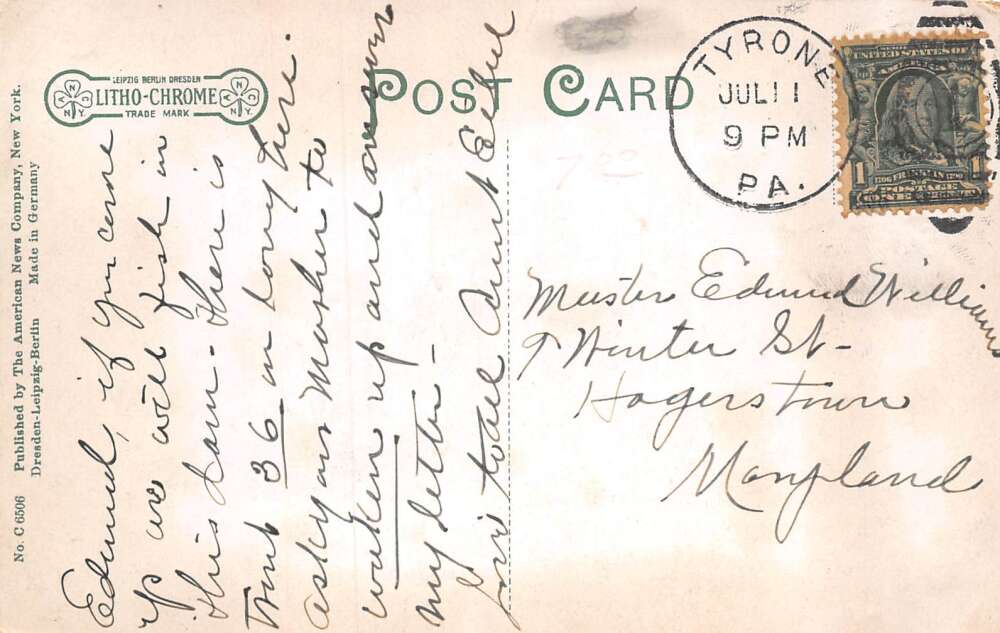 No. C 6506 Published by The American News Company, New York.
Dresden-Leipzig-Berlin Made in Germany
LEIPZIG BERLIN DRESDEN
LITHO-CHROME
TRADE MARK
POST CARD
TYRONE
JUL 11
9 PM
PA.
UNITED STATES OF
AMERICA
1 FRANKLIN 1
POSTAGE
ONE
7 00
Edmund, if you come
up we will fish in
this dam - there is
trout 36 in long here.
ask your Mother to
waken up and answer
my letter -
love to all Aunt
Master Edmund Williams
9 Winter St -
Hagerstown
Maryland